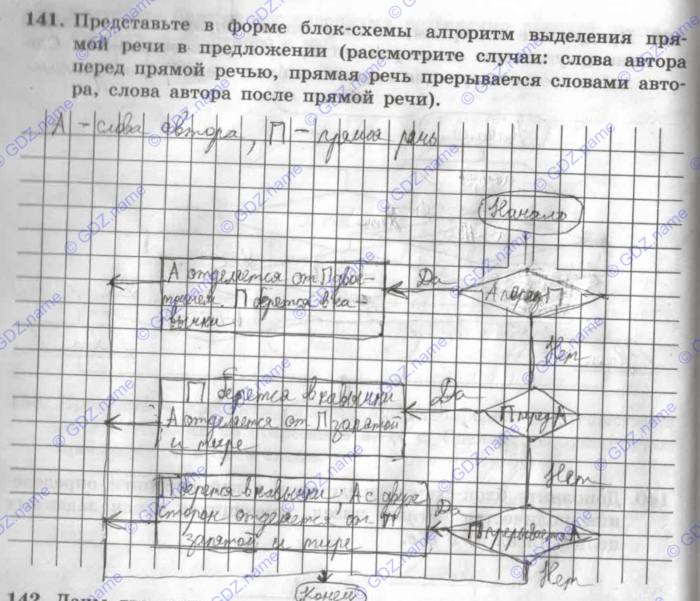 141. Представьте в форме блок-схемы алгоритм выделения пря-
мой речи в предложении (рассмотрите случаи: слова автора
перед прямой речью, прямая речь прерывается словами авто-
ра, слова автора после прямой речи).
А - слова автора, П - прямая речь
Начало
А перед П
Да
А отделяется от П двое-
точием. П берется в ка-
вычки
Нет
П перед А
Да
П берется в кавычки
А отделяется от П запятой
и тире
Нет
П прерывается А
Да
П берется в кавычки, А с двух
сторон отделяется от П
запятой и тире
Нет
Конец
142.
© GDZ.name